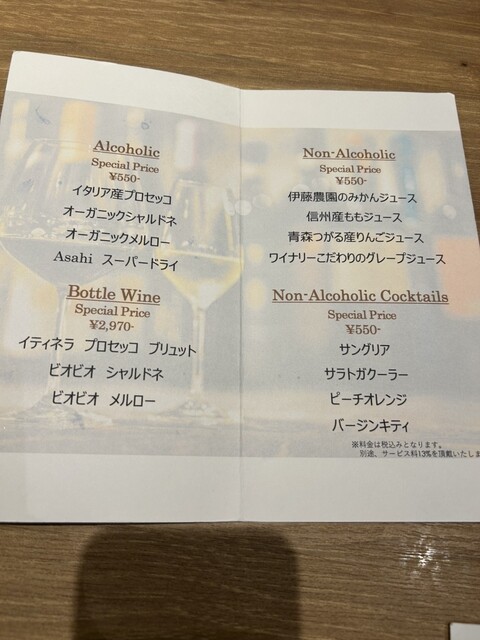 Alcoholic
Special Price
¥550-
イタリア産プロセッコ
オーガニックシャルドネ
オーガニックメルロー
Asahi スーパードライ
Bottle Wine
Special Price
¥2,970-
イティネラ プロセッコ ブリュット
ビオビオ シャルドネ
ビオビオ メルロー
Non-Alcoholic
Special Price
¥550-
伊藤農園のみかんジュース
信州産ももジュース
青森つがる産りんごジュース
ワイナリーこだわりのグレープジュース
Non-Alcoholic Cocktails
Special Price
¥550-
サングリア
サラトガクーラー
ピーチオレンジ
バージンキティ
※料金は税込みとなります。
別途、サービス料13%を頂戴いたしま